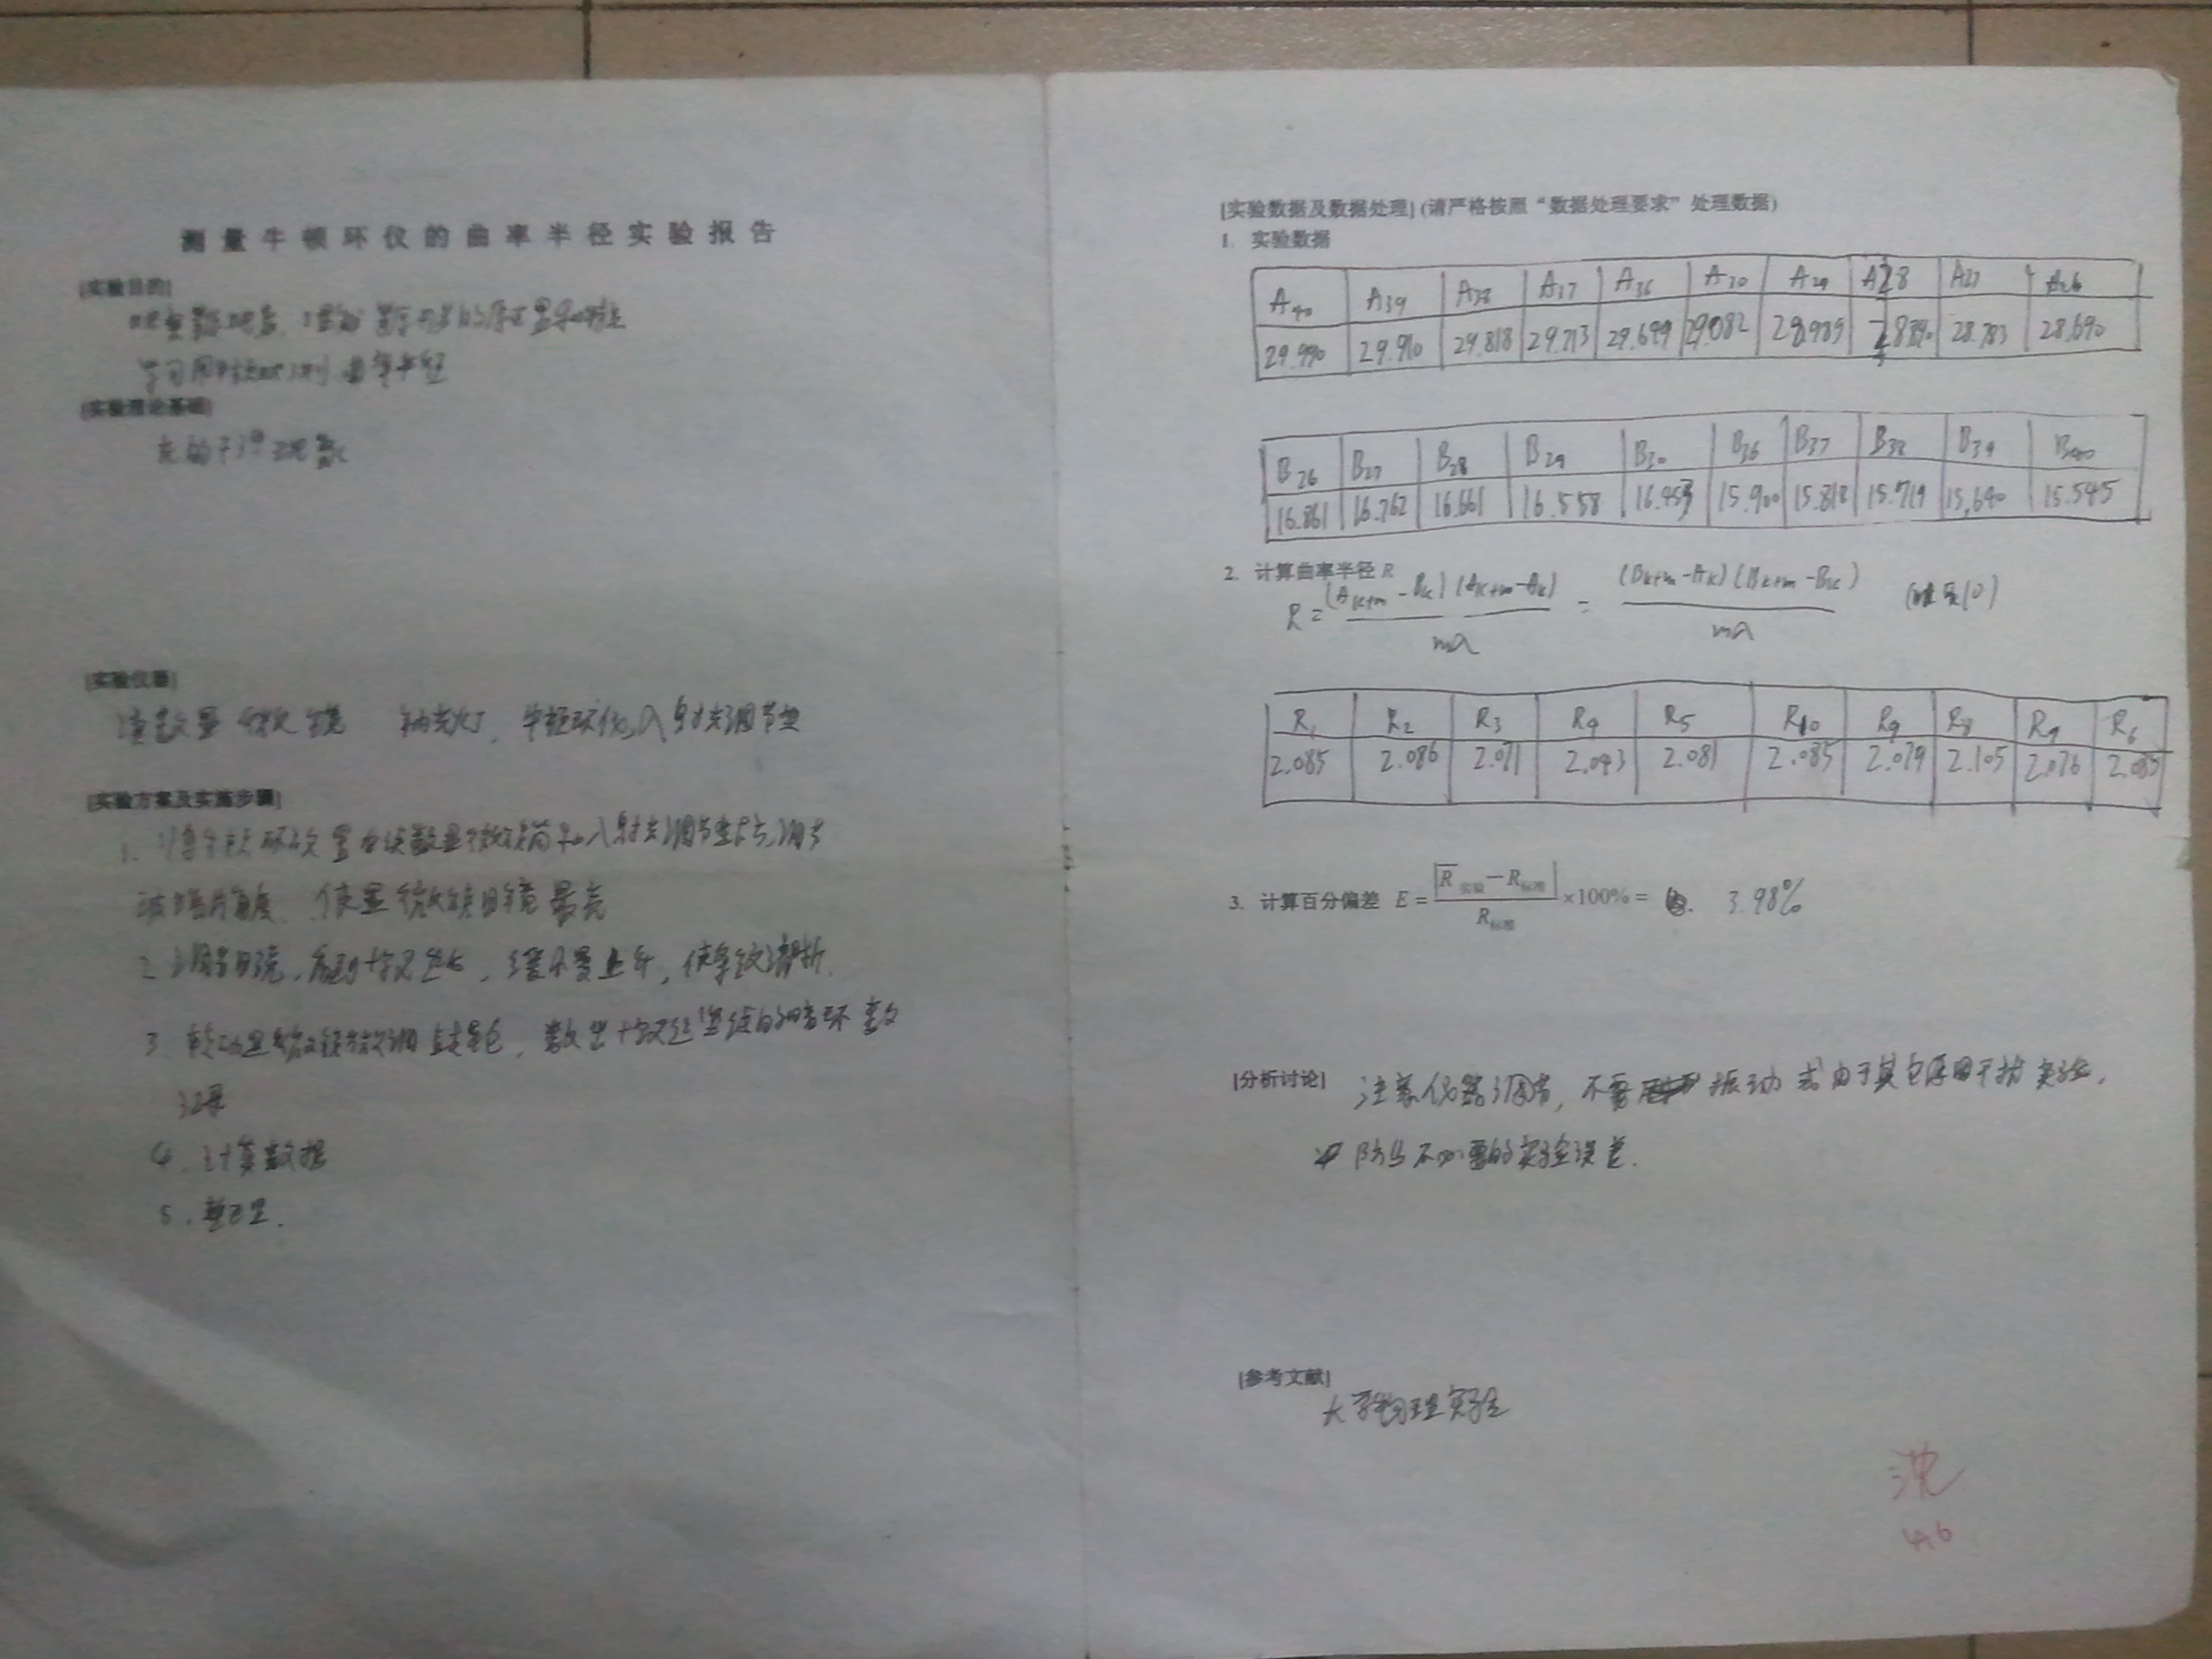 测量牛顿环仪的曲率半径实验报告
[实验目的]
学习用 曲率半径
[实验理论基础]
光的干涉现象
[实验仪器]
读数显微镜 钠光灯、牛顿环仪、入射光调节架
[实验方案及实施步骤]
1. 将牛顿环放置在读数显微镜筒和入射光调节架下方,调节
玻璃片角度、使显微镜目镜最亮
2 调节目镜,看到十字叉丝后,缓慢上升,使条纹清晰.
3. 转动显微镜微调鼓轮,数出十字叉丝竖线的暗环数
记录
4. 计算数据
5. 整理.
[实验数据及数据处理] (请严格按照“数据处理要求”处理数据)
1. 实验数据
A40 A39 A38 A37 A36 A30 A29 A28 A27 A26
29.990 29.910 29.818 29.713 29.082 28.985 28.783 28.690
B26 B27 B28 B29 B30 B36 B37 B38 B39 B40
16.861 16.762 16.661 16.558 16.453 15.900 15.818 15.719 15.640 15.545
2. 计算曲率半径 R
R = (A k+m - Bk) (A k+m - Ak) / mλ = (B k+m - Ak) (B k+m - Bk) / mλ
R1 R2 R3 R4 R5 R10 R9 R8 R7 R6
2.085 2.086 2.071 2.093 2.081 2.085 2.079 2.105 2.076 2.085
3. 计算百分偏差 E = |R̄实验 − R标准| / R标准 ×100% = 3.98%
[分析讨论] 注意仪器调节,不要 振动 或由于其它原因干扰实验.
防止不必要的实验误差.
[参考文献]
大学物理实验
沈